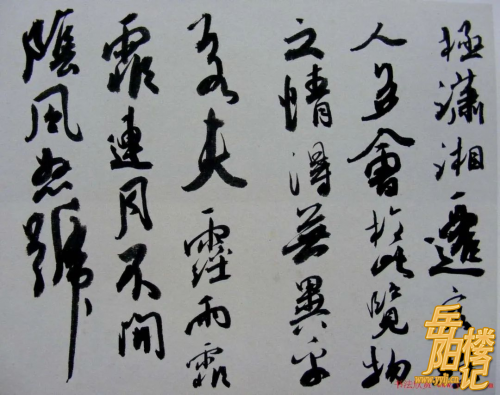 極瀟湘遷客
人多會於此覽物
之情得無異乎
若夫霪雨霏
霏連月不開
陰風怒號
岳阳楼记